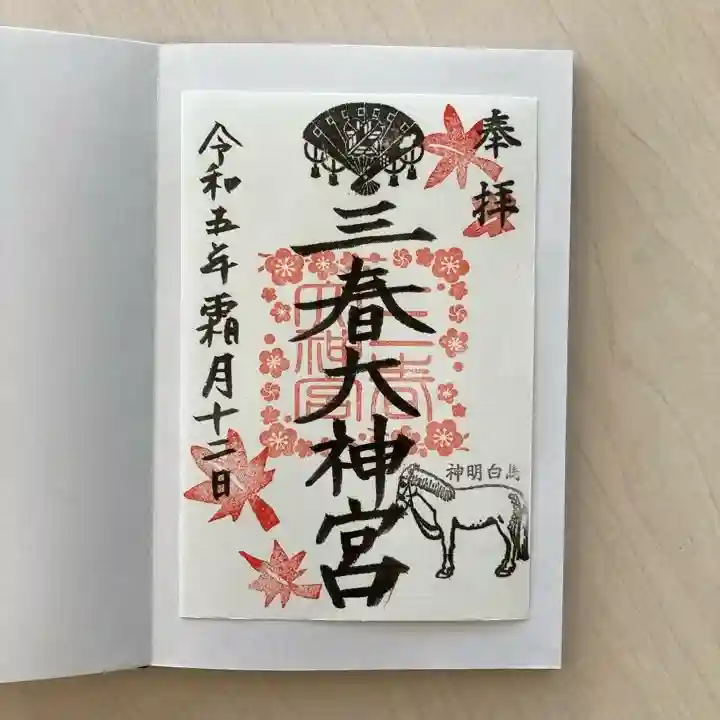 奉拝
三春大神宮
三春大神宮
神明白馬
令和五年霜月十二日